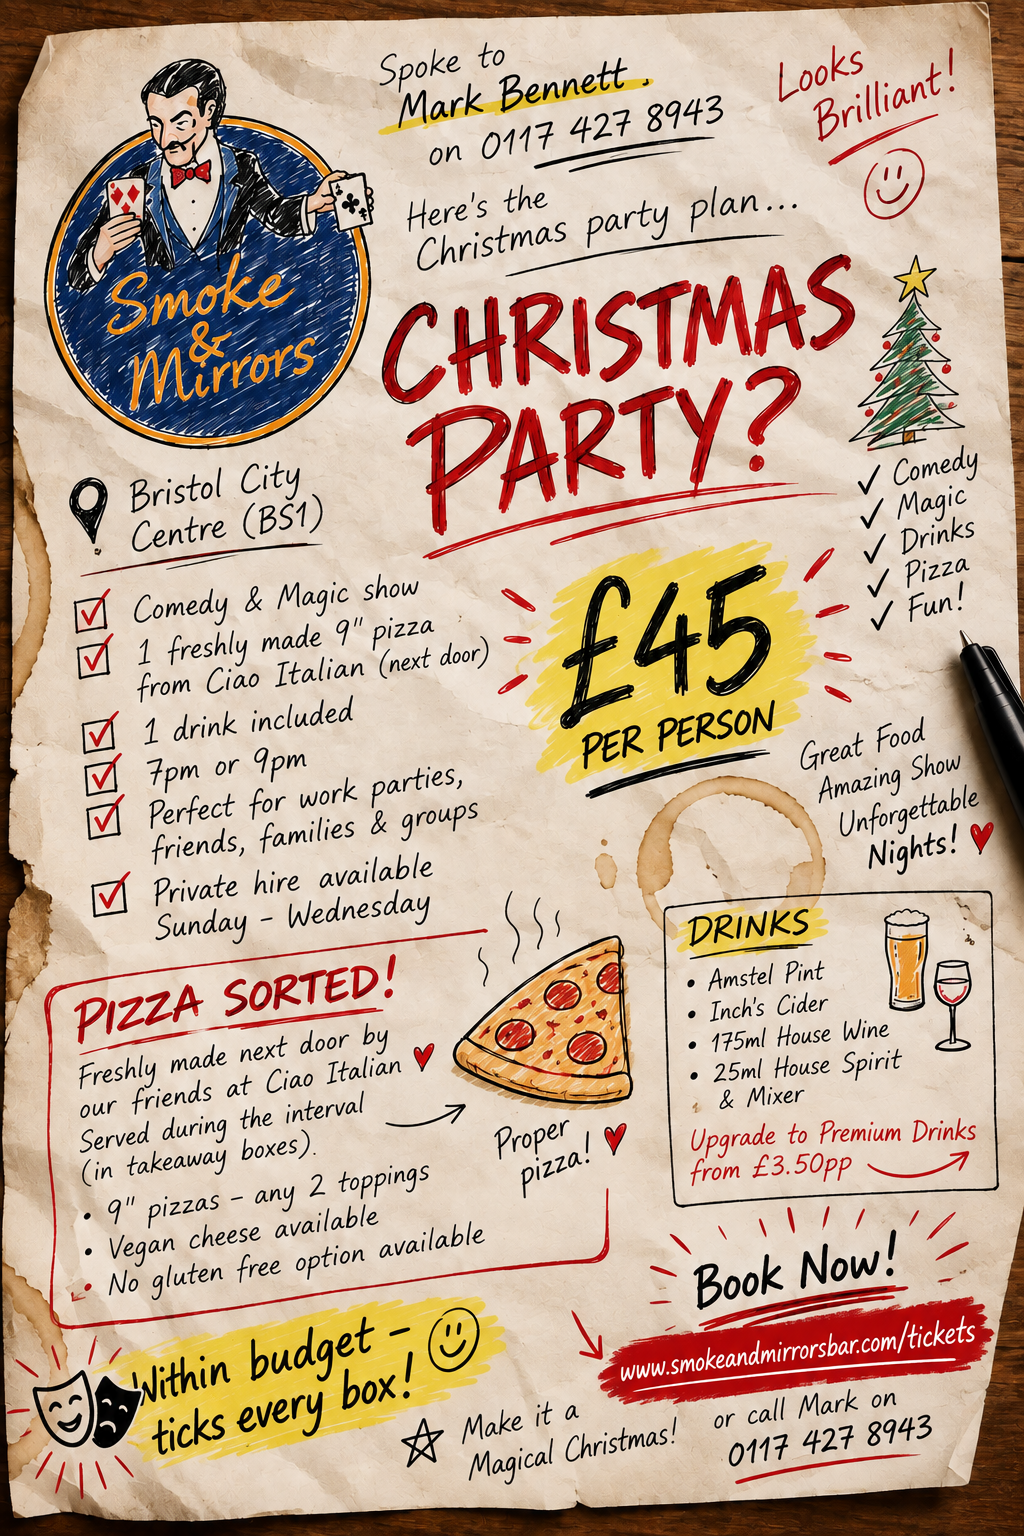 Spoke to
Mark Bennett.
on 0117 427 8943
Looks
Brilliant!
Here's the
Christmas party plan...
Smoke
&
Mirrors
CHRISTMAS
PARTY?
Bristol City
Centre (BS1)
✓ Comedy
✓ Magic
✓ Drinks
✓ Pizza
✓ Fun!
Comedy & Magic show
1 freshly made 9" pizza
from Ciao Italian (next door)
1 drink included
7pm or 9pm
Perfect for work parties,
friends, families & groups
Private hire available
Sunday - Wednesday
£45
PER PERSON
Great Food
Amazing Show
Unforgettable
Nights!
PIZZA SORTED!
Freshly made next door by
our friends at Ciao Italian
Served during the interval
(in takeaway boxes).
• 9" pizzas - any 2 toppings
• Vegan cheese available
• No gluten free option available
Proper
pizza!
DRINKS
• Amstel Pint
• Inch's Cider
• 175ml House Wine
• 25ml House Spirit
& Mixer
Upgrade to Premium Drinks
from £3.50pp
Book Now!
www.smokeandmirrorsbar.com/tickets
or call Mark on
0117 427 8943
Within budget -
ticks every box!
Make it a
Magical Christmas!